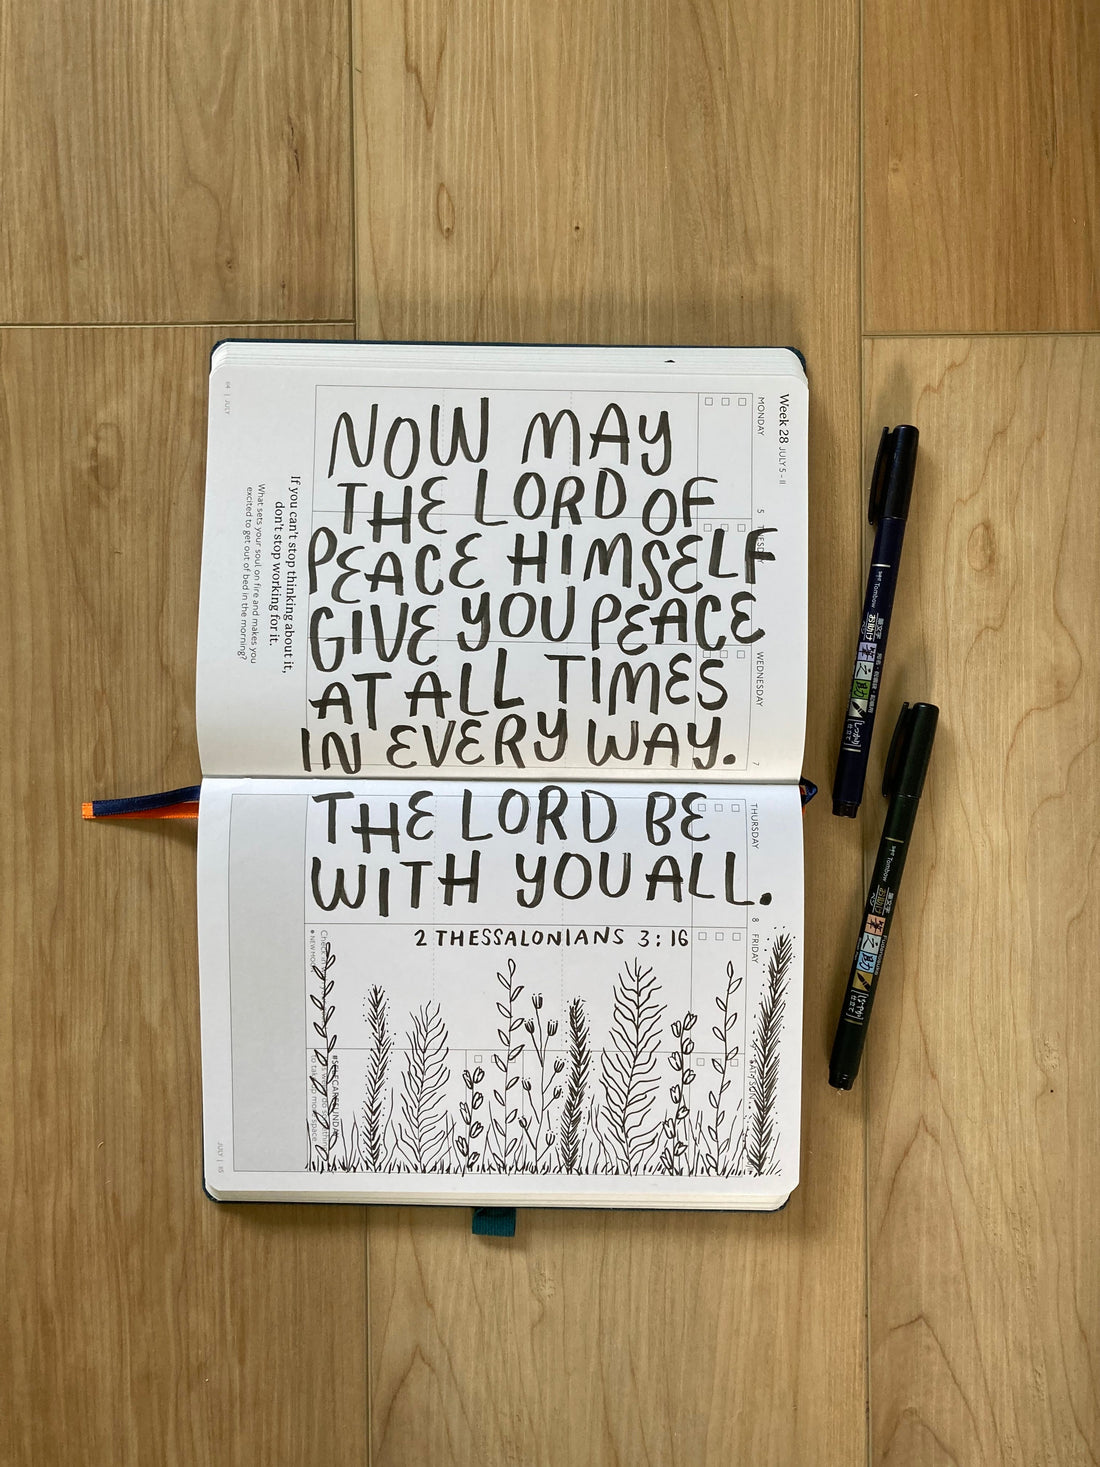 NOW MAY
THE LORD OF
PEACE HIMSELF
GIVE YOU PEACE
AT ALL TIMES
IN EVERY WAY.
THE LORD BE
WITH YOU ALL.
2 THESSALONIANS 3:16
Week 28 JULY 5 - 11
MONDAY
5
WEDNESDAY
7
THURSDAY
8
FRIDAY
If you can't stop thinking about it,
don't stop working for it.
What sets your soul on fire and makes you
excited to get out of bed in the morning?
64 | JULY
JULY | 65
Tombow
Tombow